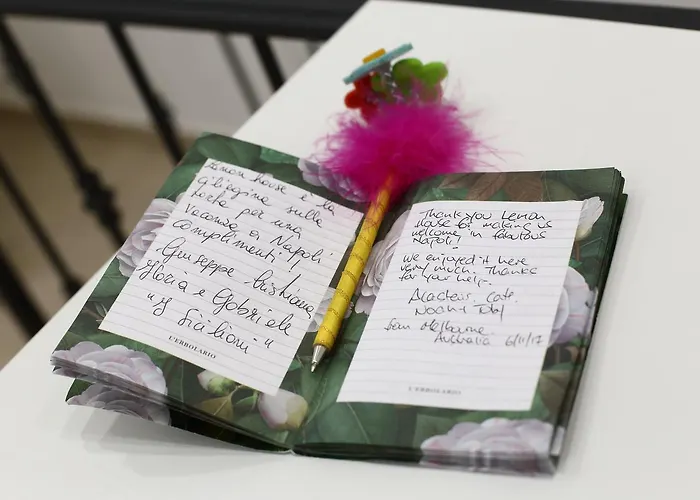 Lemon house è la
ciliegina sulla
torta per una
vacanza a Napoli
complimenti!!
Giuseppe Cristiana
Gloria e Gabriele
"i Siciliani"
L'ERBOLARIO
Thank you Lemon
House for making us
welcome in fabulous
Napoli!
We enjoyed it here
very much. Thanks
for your help.
Cate,
Noah +
from Melbourne
Australia 6/11/17
L'ERBOLARIO